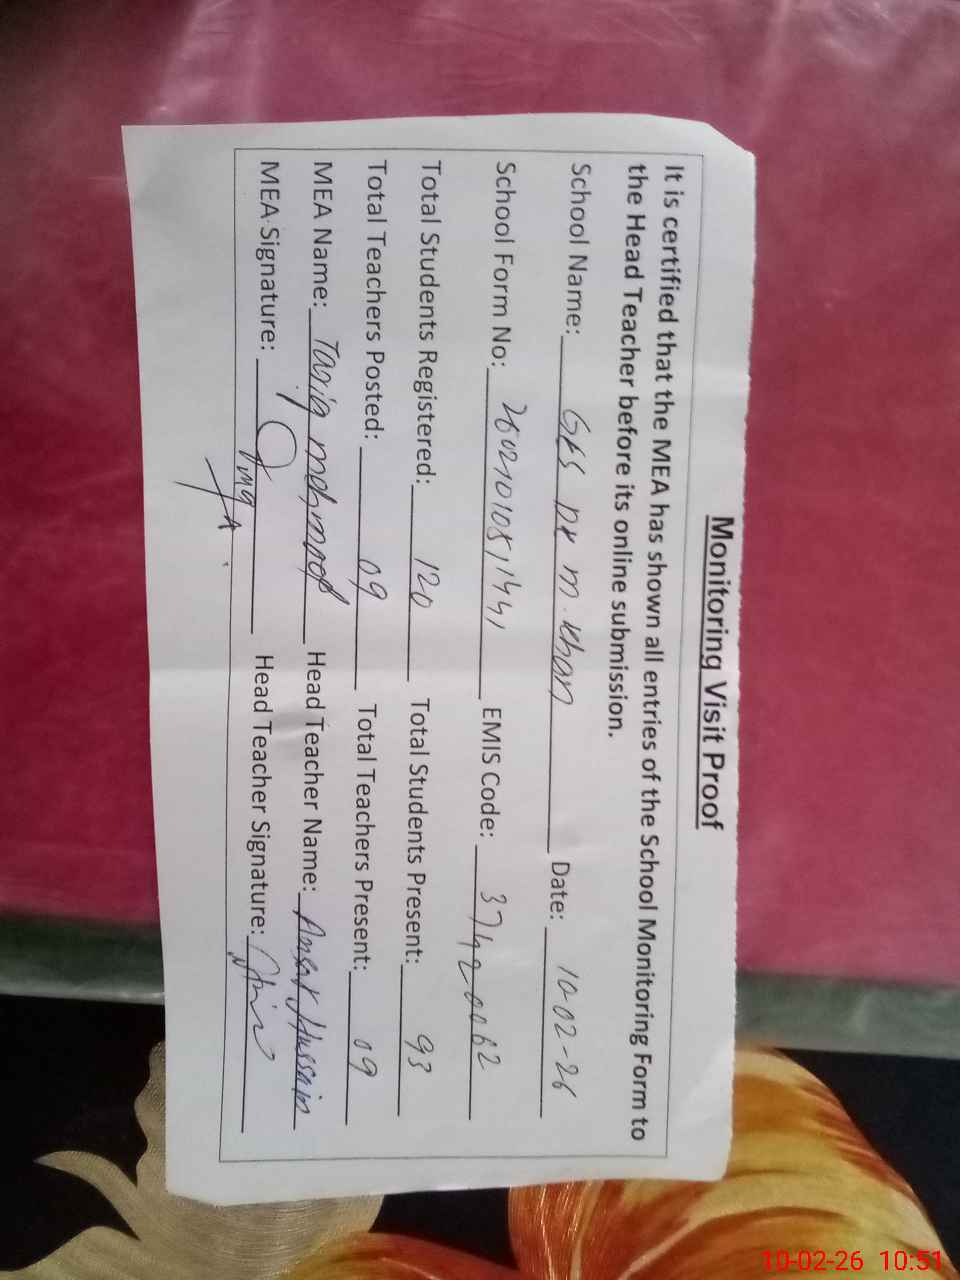 Monitoring Visit Proof
It is certified that the MEA has shown all entries of the School Monitoring Form to
the Head Teacher before its online submission.
School Name: GES DK M. Khan Date: 10-02-26
School Form No: EMIS Code: 37420062
Total Students Registered: 120 Total Students Present: 93
Total Teachers Posted: 09 Total Teachers Present: 09
MEA Name: Tariq mehmood Head Teacher Name: Hussain
MEA Signature: Head Teacher Signature:
10-02-26 10:51